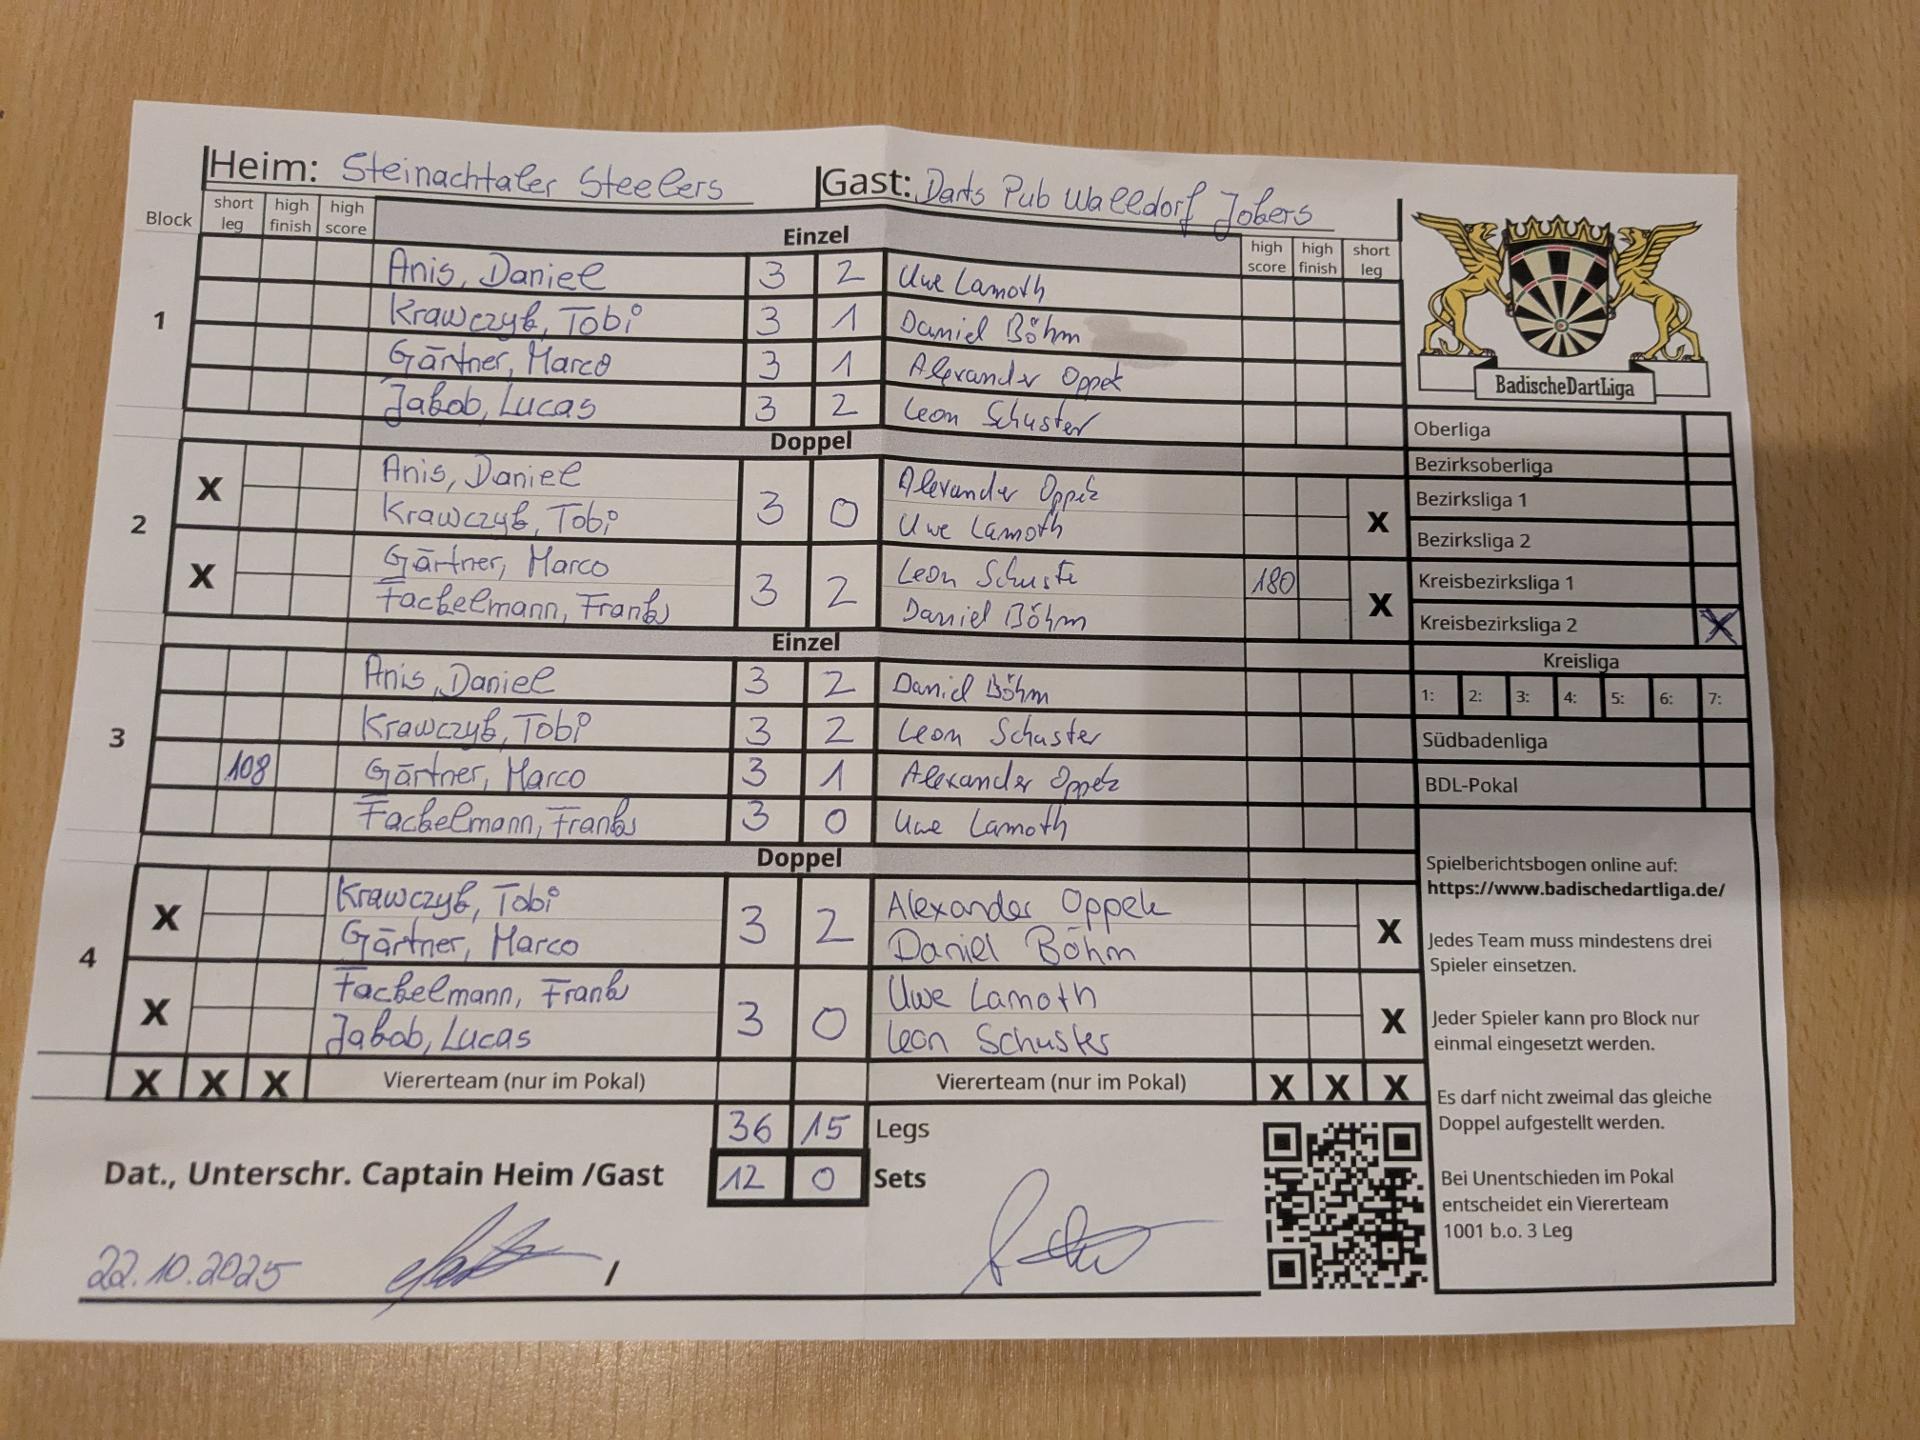 Heim: Steinachtaler Steelers Gast: Darts Pub Walldorf Jokers
Block short leg high finish high score Einzel high score high finish short leg
1
Anis, Daniel 3 2 Uwe Lamoth
Krawczyk, Tobi 3 1 Daniel Böhm
Gärtner, Marco 3 1 Alexander Oppek
Jakob, Lucas 3 2 Leon Schuster
Doppel
2
X Anis, Daniel 3 0 Alexander Oppek X
Krawczyk, Tobi Uwe Lamoth
X Gärtner, Marco 3 2 Leon Schuste 180 X
Fackelmann, Frank Daniel Böhm
Einzel
3
Anis, Daniel 3 2 Daniel Böhm
Krawczyk, Tobi 3 2 Leon Schuster
108 Gärtner, Marco 3 1 Alexander Oppek
Fackelmann, Frank 3 0 Uwe Lamoth
Doppel
4
X Krawczyk, Tobi 3 2 Alexander Oppek X
Gärtner, Marco Daniel Böhm
X Fackelmann, Frank 3 0 Uwe Lamoth X
Jakob, Lucas Leon Schuster
X X X Viererteam (nur im Pokal) Viererteam (nur im Pokal) X X X
36 15 Legs
Dat., Unterschr. Captain Heim /Gast 12 0 Sets
22.10.2025 /
BadischeDartLiga
Oberliga
Bezirksoberliga
Bezirksliga 1
Bezirksliga 2
Kreisbezirksliga 1
Kreisbezirksliga 2 X
Kreisliga
1: 2: 3: 4: 5: 6: 7:
Südbadenliga
BDL-Pokal
Spielberichtsbogen online auf:
https://www.badischedartliga.de/
Jedes Team muss mindestens drei
Spieler einsetzen.
Jeder Spieler kann pro Block nur
einmal eingesetzt werden.
Es darf nicht zweimal das gleiche
Doppel aufgestellt werden.
Bei Unentschieden im Pokal
entscheidet ein Viererteam
1001 b.o. 3 Leg